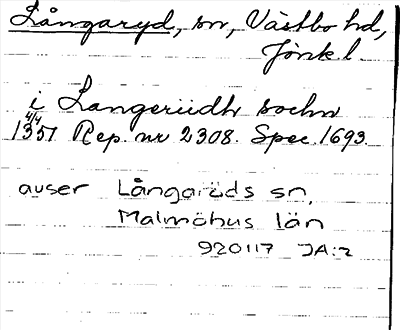 Långaryd, sn, Västbo hd,
Jönk l.
i Langerüdh sochn
4/4
1351 Rep. nr 2308. Spec 1693.
avser Långaröds sn,
Malmöhus län
920117 JA:2